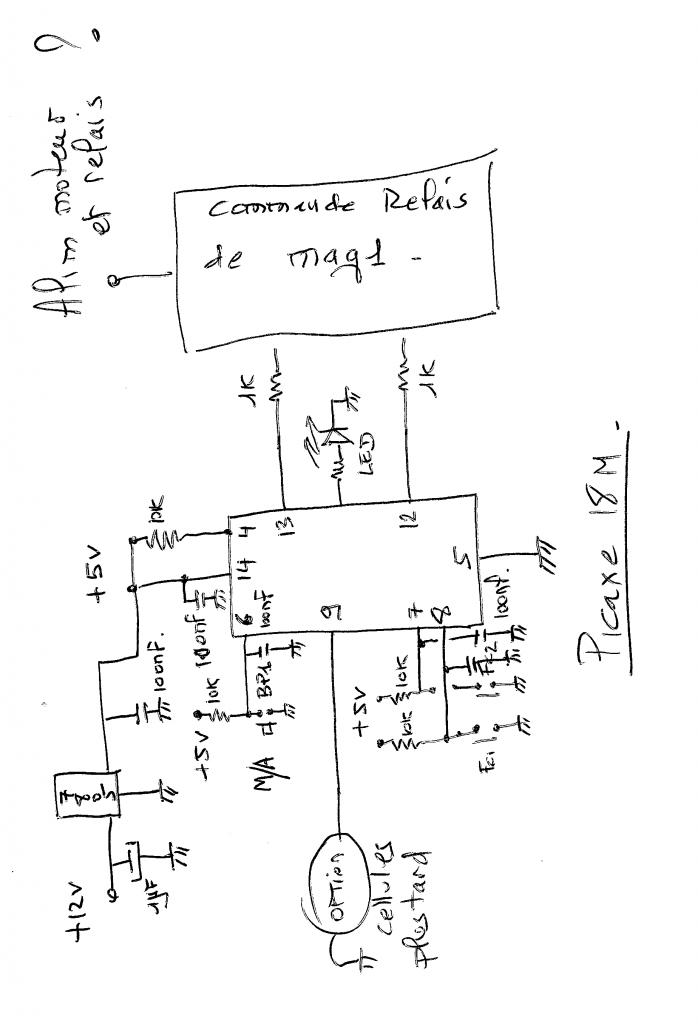 Alim moteur ?
et relais
Commande Relais
de mag1 -
1K
LED
1K
+5V
10K
4
13
14
12
6
100nF
5
9
7
8
100nF.
100nF
100nF.
+5V
10K
BP1
M/A
+5V
10K
10K
FC2
Fc1
7805
+12V
1µF
OPTION
cellules
plustard
Picaxe 18M.